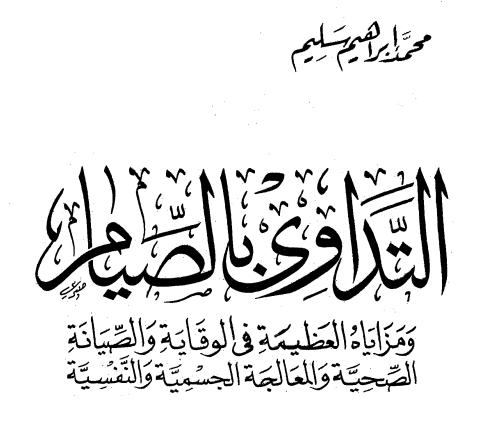 محمد إبراهيم سليم
التَّدَاوِى بالصِّيَام
وَمَزَايَاهُ العَظِيمَة فى الوقَايَةِ وَالصِّيَانَةِ
الصِّحِيَّة وَالمعَالجَة الجسْمِيَّة وَالنَّفْسِيَّة